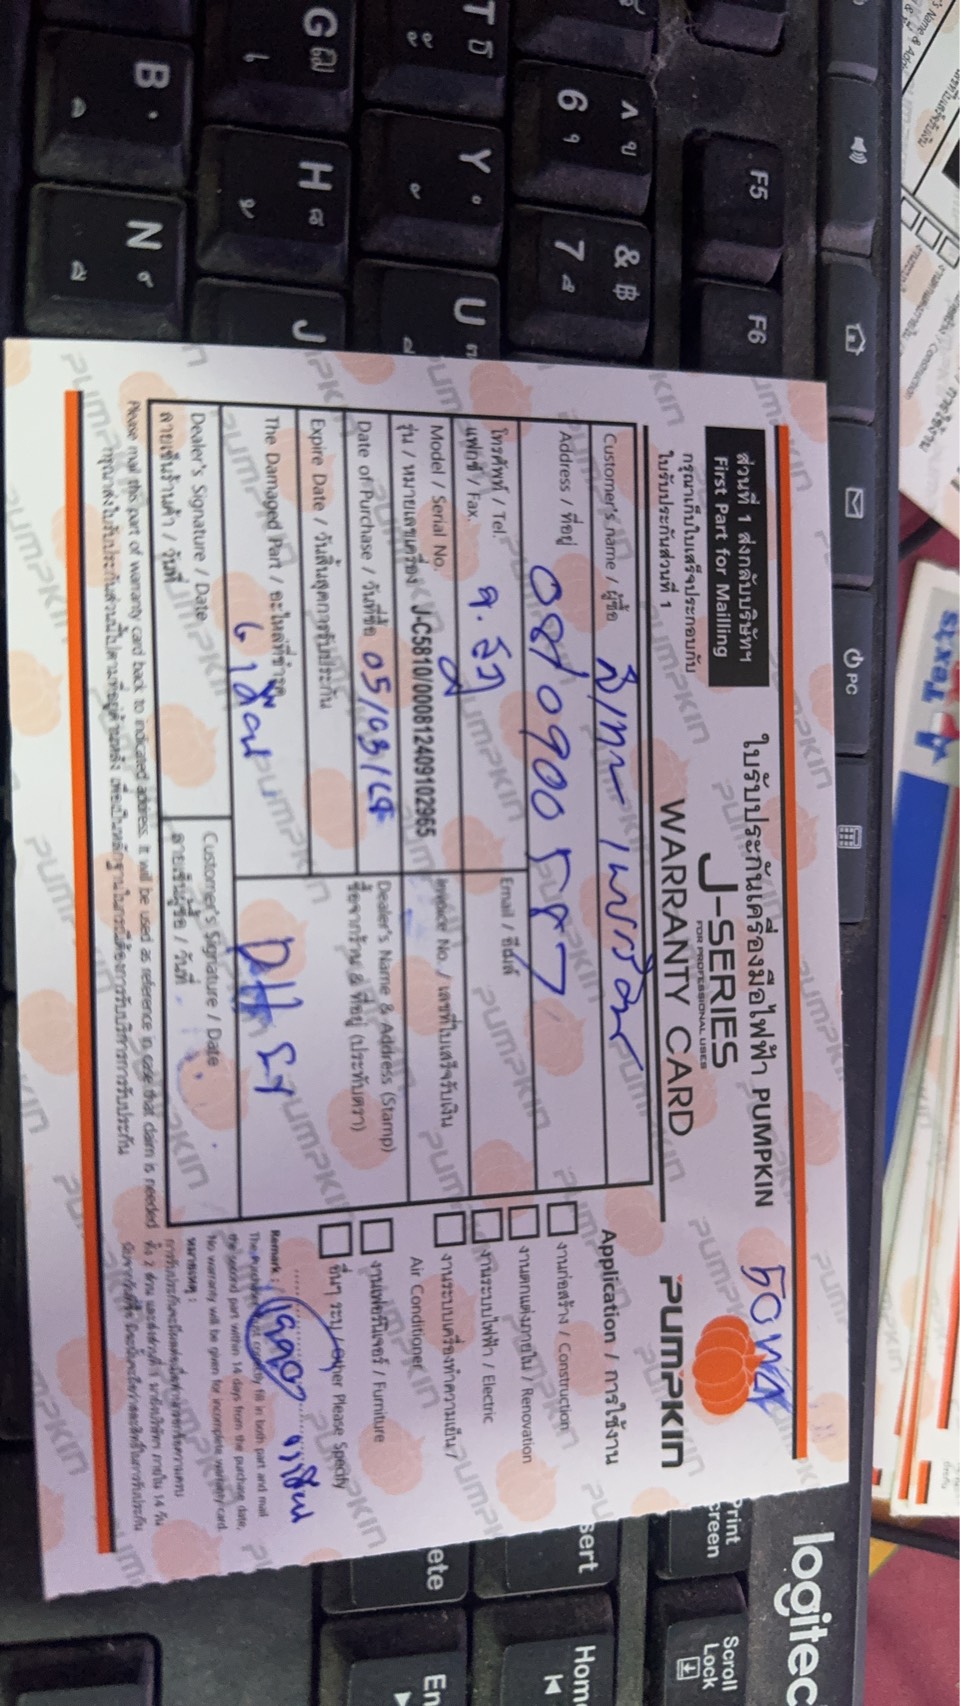 ส่วนที่ 1 ส่งกลับบริษัทฯ
First Part for Mailling
ใบรับประกันเครื่องมือไฟฟ้า PUMPKIN
J-SERIES
FOR PROFESSIONAL USES
WARRANTY CARD
กรุณาเก็บใบเสร็จประกอบกับ
ใบรับประกันส่วนที่ 1
PUMPKIN
Customer's name / ผู้ซื้อ
Address / ที่อยู่
089 0900 587
โทรศัพท์ / Tel.
แฟกซ์ / Fax.
Email / อีเมล์
Model / Serial No.
รุ่น / หมายเลขเครื่อง J-C5810/000812409102965
Invoice No. / เลขที่ใบเสร็จรับเงิน
Date of Purchase / วันที่ซื้อ 05/03/68
Dealer's Name & Address (Stamp)
ชื่อจากร้าน & ที่อยู่ (ประทับตรา)
Expire Date / วันสิ้นสุดการรับประกัน
The Damaged Part / อะไหล่ที่ชำรุด
6 เดือน
Dealer's Signature / Date
ลายเซ็นร้านค้า / วันที่
Customer's Signature / Date
ลายเซ็นผู้ซื้อ / วันที่
Please mail this part of warranty card back to indicated address. It will be used as reference in case that claim is needed
กรุณาส่งใบรับประกันส่วนนี้ไปตามที่อยู่ด้านหลัง เพื่อเป็นหลักฐานในกรณีต้องการรับบริการการรับประกัน
Application / การใช้งาน
งานก่อสร้าง / Construction
งานตกแต่งภายใน / Renovation
งานระบบไฟฟ้า / Electric
งานระบบเครื่องทำความเย็น /
Air Conditioner
งานเฟอร์นิเจอร์ / Furniture
อื่นๆ ระบุ / Other Please Specify
Remark :
the second part within 14 days from the purchase date.
No warranty will be given for incomplete warranty card.
หมายเหตุ :
logitec
F5
F6
PC
Print
Screen
Scroll
Lock
Home
G
T
6
B
H
Y
7
&
฿
N
J
U
Texts